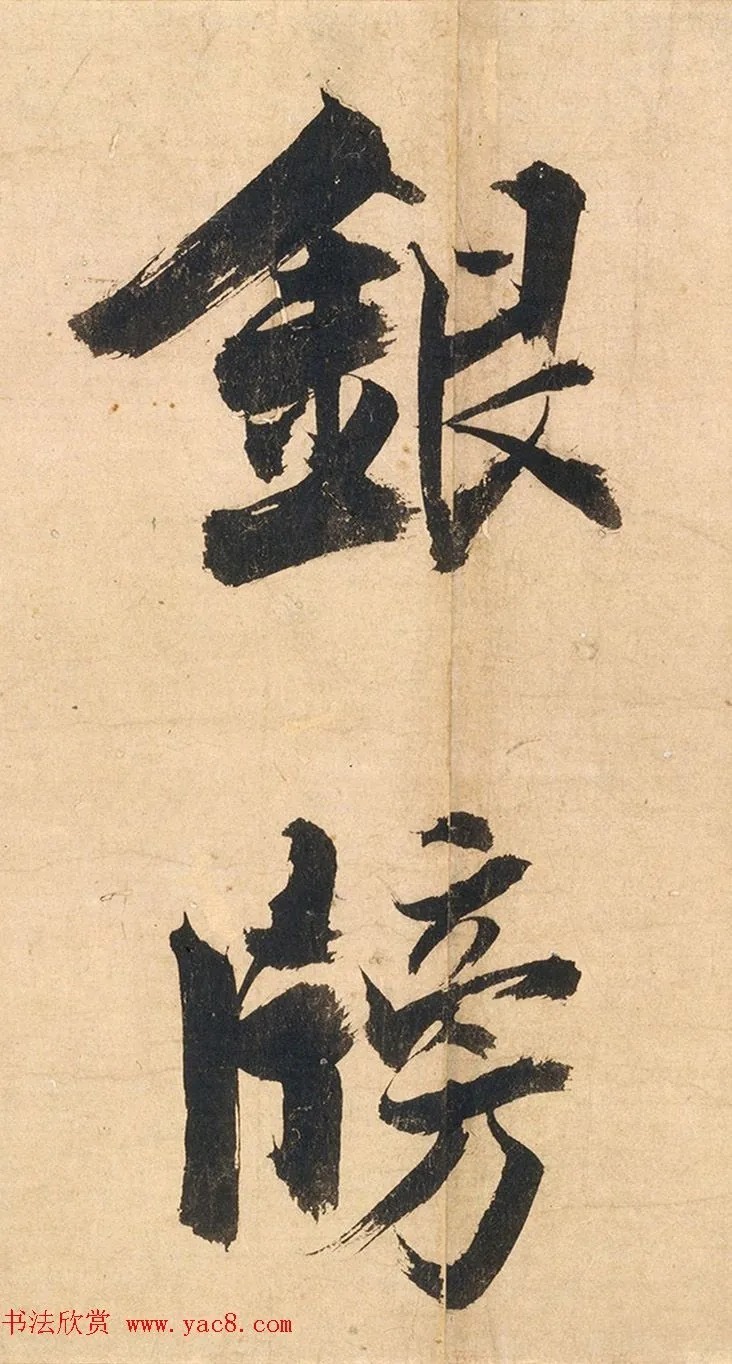 銀
牓
书法欣赏 www.yac8.com